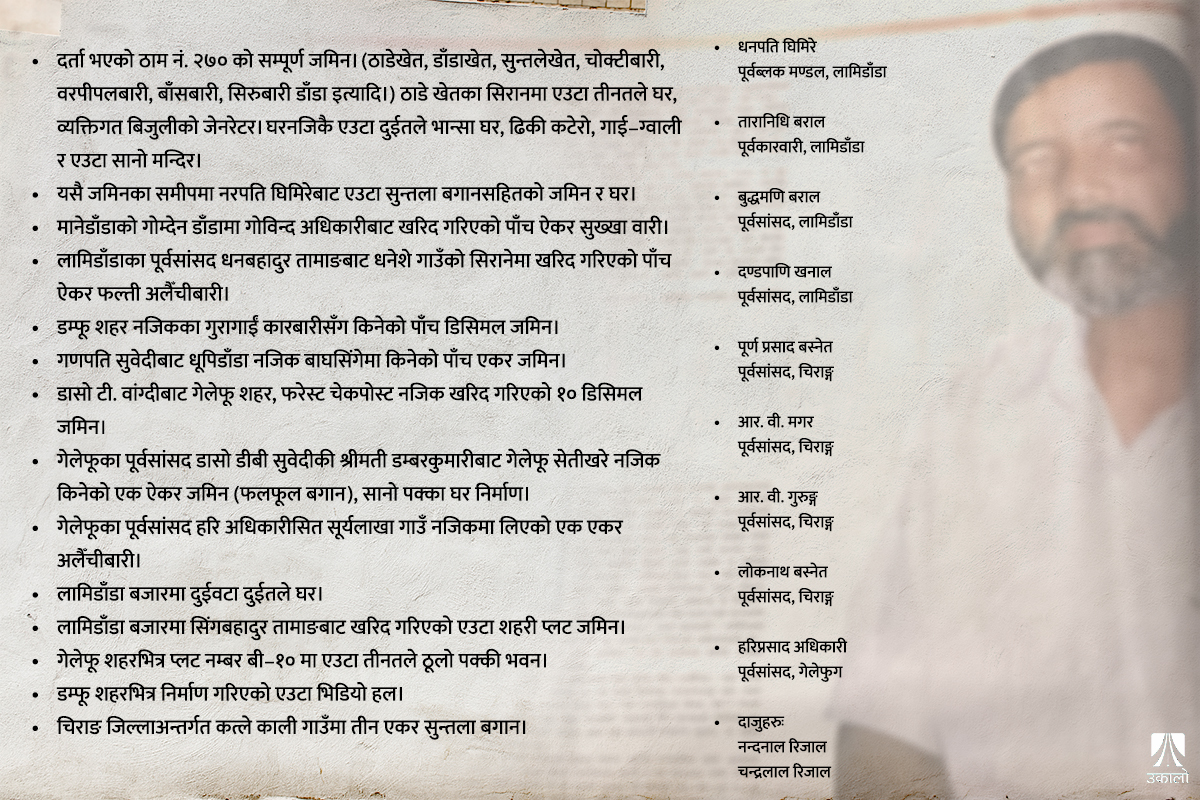 • दर्ता भएको ठाम नं. २७० को सम्पूर्ण जमिन। (ठाडेखेत, डाँडाखेत, सुन्तलेखेत, चोक्टीबारी,
वरपीपलबारी, बाँसबारी, सिरुबारी डाँडा इत्यादि।) ठाडे खेतका सिरानमा एउटा तीनतले घर,
व्यक्तिगत बिजुलीको जेनरेटर। घरनजिकै एउटा दुईतले भान्सा घर, ढिकी कटेरो, गाई–ग्वाली
र एउटा सानो मन्दिर।
• यसै जमिनका समीपमा नरपति घिमिरेबाट एउटा सुन्तला बगानसहितको जमिन र घर।
• मानेडाँडाको गोम्देन डाँडामा गोविन्द अधिकारीबाट खरिद गरिएको पाँच ऐकर सुख्खा वारी।
• लामिडाँडाका पूर्वसांसद धनबहादुर तामाङबाट धनेशे गाउँको सिरानेमा खरिद गरिएको पाँच
ऐकर फल्ती अलैँचीबारी।
• डम्फू शहर नजिकका गुरागाईं कारबारीसँग किनेको पाँच डिसिमल जमिन।
• गणपति सुवेदीबाट धूपिडाँडा नजिक बाघसिंगेमा किनेको पाँच एकर जमिन।
• डासो टी. वांग्दीबाट गेलेफू शहर, फरेस्ट चेकपोस्ट नजिक खरिद गरिएको १० डिसिमल
जमिन।
• गेलेफूका पूर्वसांसद डासो डीबी सुवेदीकी श्रीमती डम्बरकुमारीबाट गेलेफू सेतीखरे नजिक
किनेको एक ऐकर जमिन (फलफूल बगान), सानो पक्का घर निर्माण।
• गेलेफूका पूर्वसांसद हरि अधिकारीसित सूर्यलाखा गाउँ नजिकमा लिएको एक एकर
अलैँचीबारी।
• लामिडाँडा बजारमा दुईवटा दुईतले घर।
• लामिडाँडा बजारमा सिंगबहादुर तामाङबाट खरिद गरिएको एउटा शहरी प्लट जमिन।
• गेलेफू शहरभित्र प्लट नम्बर बी–१० मा एउटा तीनतले ठूलो पक्की भवन।
• डम्फू शहरभित्र निर्माण गरिएको एउटा भिडियो हल।
• चिराङ जिल्लाअन्तर्गत कत्ले काली गाउँमा तीन एकर सुन्तला बगान।
• धनपति घिमिरे
पूर्वब्लक मण्डल, लामिडाँडा
• तारानिधि बराल
पूर्वकारवारी, लामिडाँडा
• बुद्धमणि बराल
पूर्वसांसद, लामिडाँडा
• दण्डपाणि खनाल
पूर्वसांसद, लामिडाँडा
• पूर्ण प्रसाद बस्नेत
पूर्वसांसद, चिराङ्ग
• आर. वी. मगर
पूर्वसांसद, चिराङ्ग
• आर. वी. गुरुङ्ग
पूर्वसांसद, चिराङ्ग
• लोकनाथ बस्नेत
पूर्वसांसद, चिराङ्ग
• हरिप्रसाद अधिकारी
पूर्वसांसद, गेलेफुग
• दाजुहरुः
नन्दनाल रिजाल
चन्द्रलाल रिजाल
उकालो